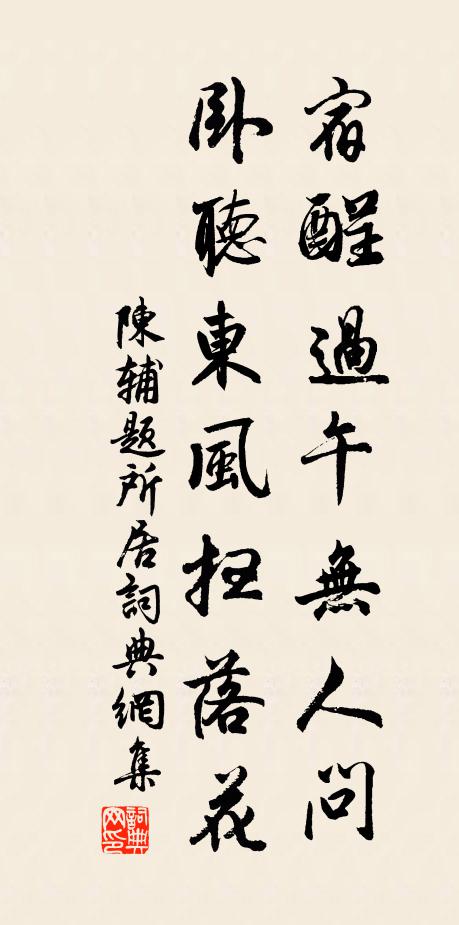 宿酲過午無人問
卧聽東風狂落花
陳辅题所居詞典網集
詞典网印